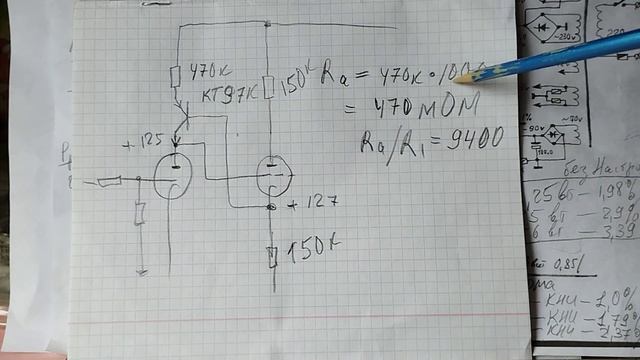 470к
КТ97К
150к
Ra = 470к · 1000
= 470 МОМ
Ra/R1 = 9400
+125
+127
150к
~230v
220
-90v
~70v
без Настр
25 вт - 1,98%
5 вт - 2,9%
6 вт - 3,39
0,85
- КНИ - 1,0%
- КНИ - 1,79%
- КНИ - 2,37%